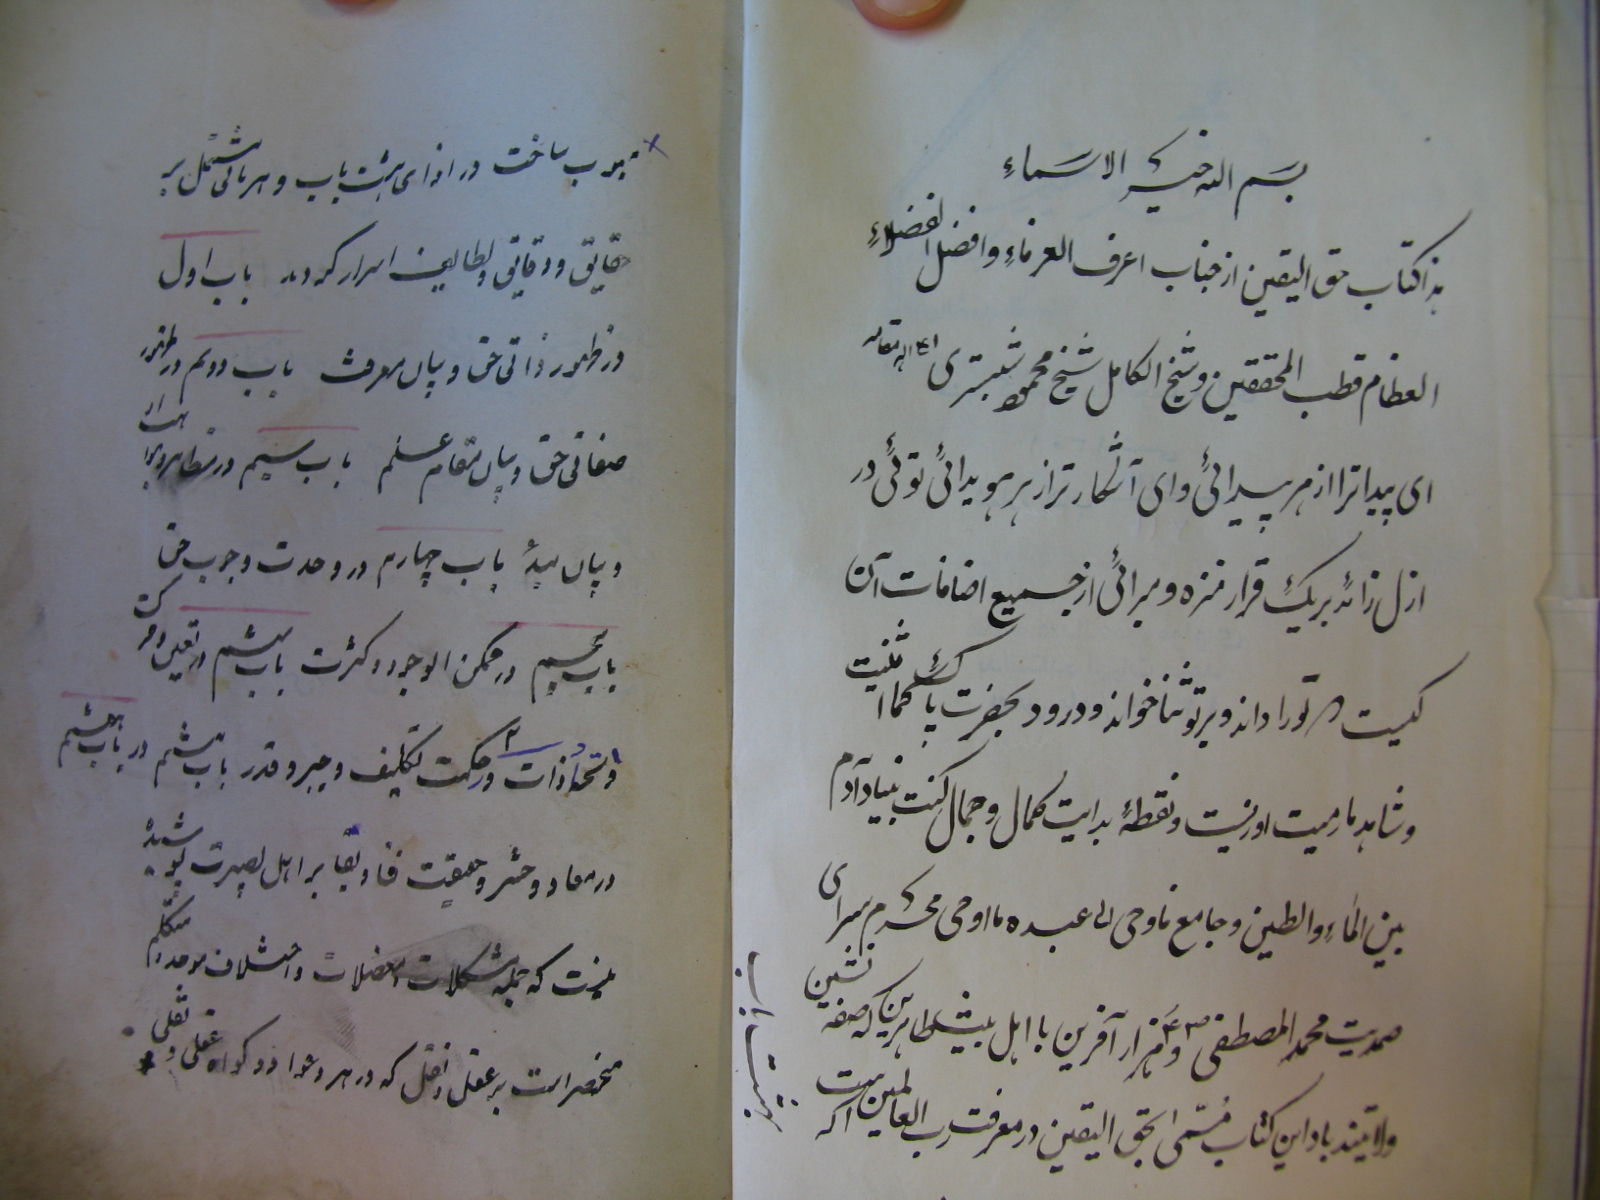 بسم الله خیر الاسماء
هذا کتاب حق الیقین از جناب اعرف العرفاء و افضل الفضلاء
العظام قطب المحققین و شیخ الکامل شیخ محمود شبستری
ای پیداتر از هر پیدائی و ای آشکارتر از هر هویدائی توئی در
ازل زائد بر یک قرار منزه و مبرائی از جمیع اضافات آن
کیست که تو را داند و بر تو ثنا خواند و درود بحضرت پاک کما اثنیت
و شاهد مارمیت اوزنیست و نقطهٔ بدایت کمال و جمال کنت نبیا و آدم
بین الماء و الطین و جامع فاوحی الی عبده ما اوحی محرم سرای
صمدیت محمد المصطفی و هزار آفرین با اهل بیت طاهرین که صفه نشین
ولایتند باد این کتاب مسمی بحق الیقین در معرفت رب العالمین است که
هشت باب
مبوب ساخت در ازای هشت باب و هر بابی مشتمل بر
حقایق و دقایق و لطایف اسرار گردید باب اول
در ظهور ذاتی حق و بیان معرفت باب دویم در ظهور
صفاتی حق و بیان مقام علم باب سیم در مظاهر و مراتب آن
و بیان مبدأ باب چهارم در وحدت وجوب حق
باب پنجم در ممکن الوجود و کثرت باب ششم در تعین و حرکت
و تجدد ذات در حکمت تکلیف و جبر و قدر باب هشتم در باب هفتم
در معاد و حشر و حقیقت فنا و بقا بر اهل بصیرت پوشیده
نیست که جمله مشکلات و معضلات و اختلاف موحد و متکلم
منحصر است بر عقل و نقل که در هر دعوا دو گواه عقلی و نقلی